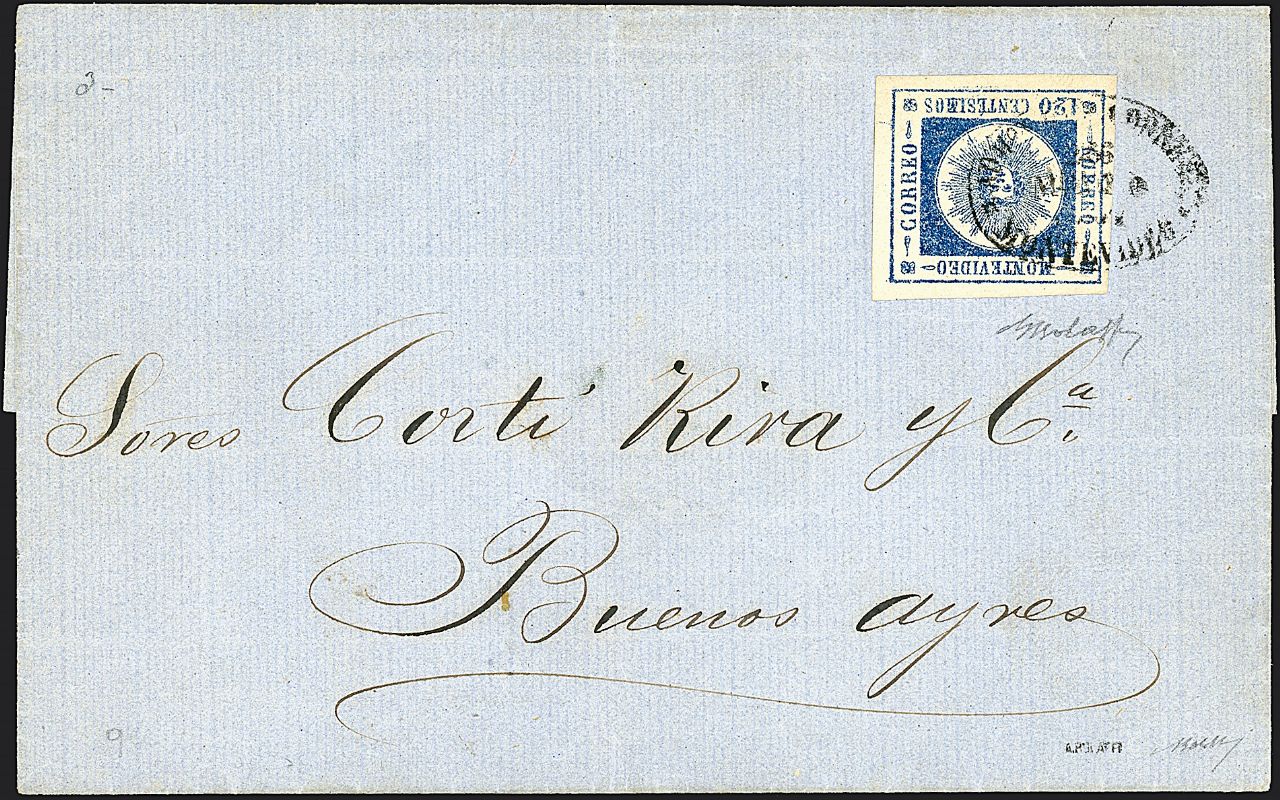 3-
120 CENTESIMOS
CORREO
CORREO
MONTEVIDEO
Sõres Corti Riva y Cª
Buenos ayres
9